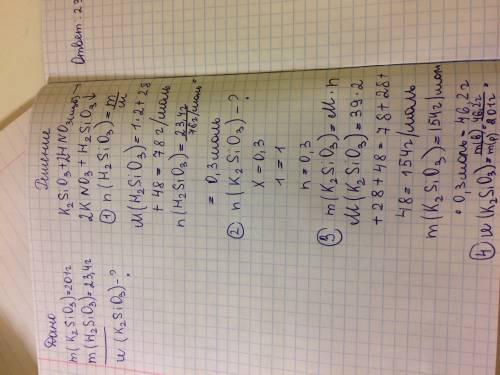 Ответ: 23
Дано
m(K₂SiO₃)=201г
m(H₂SiO₃)=23,4г
w(K₂SiO₃)-?
Решение
K₂SiO₃+2HNO₃
2KNO₃+H₂SiO₃↓
① n(H₂SiO₃)=m/M
M(H₂SiO₃)=1·2+28
+48=78г/моль
n(H₂SiO₃)=23,4г/78г/моль=
=0,3моль
② n(K₂SiO₃)-?
X=0,3
1=1
n=0,3
③ m(K₂SiO₃)=M·n
M(K₂SiO₃)=39·2
+28+48=78+28+
48=154г/моль
m(K₂SiO₃)=154г/мол
·0,3моль=46,2г
④ w(K₂SiO₃)=m(в)/m(р)=46,2г/201г=